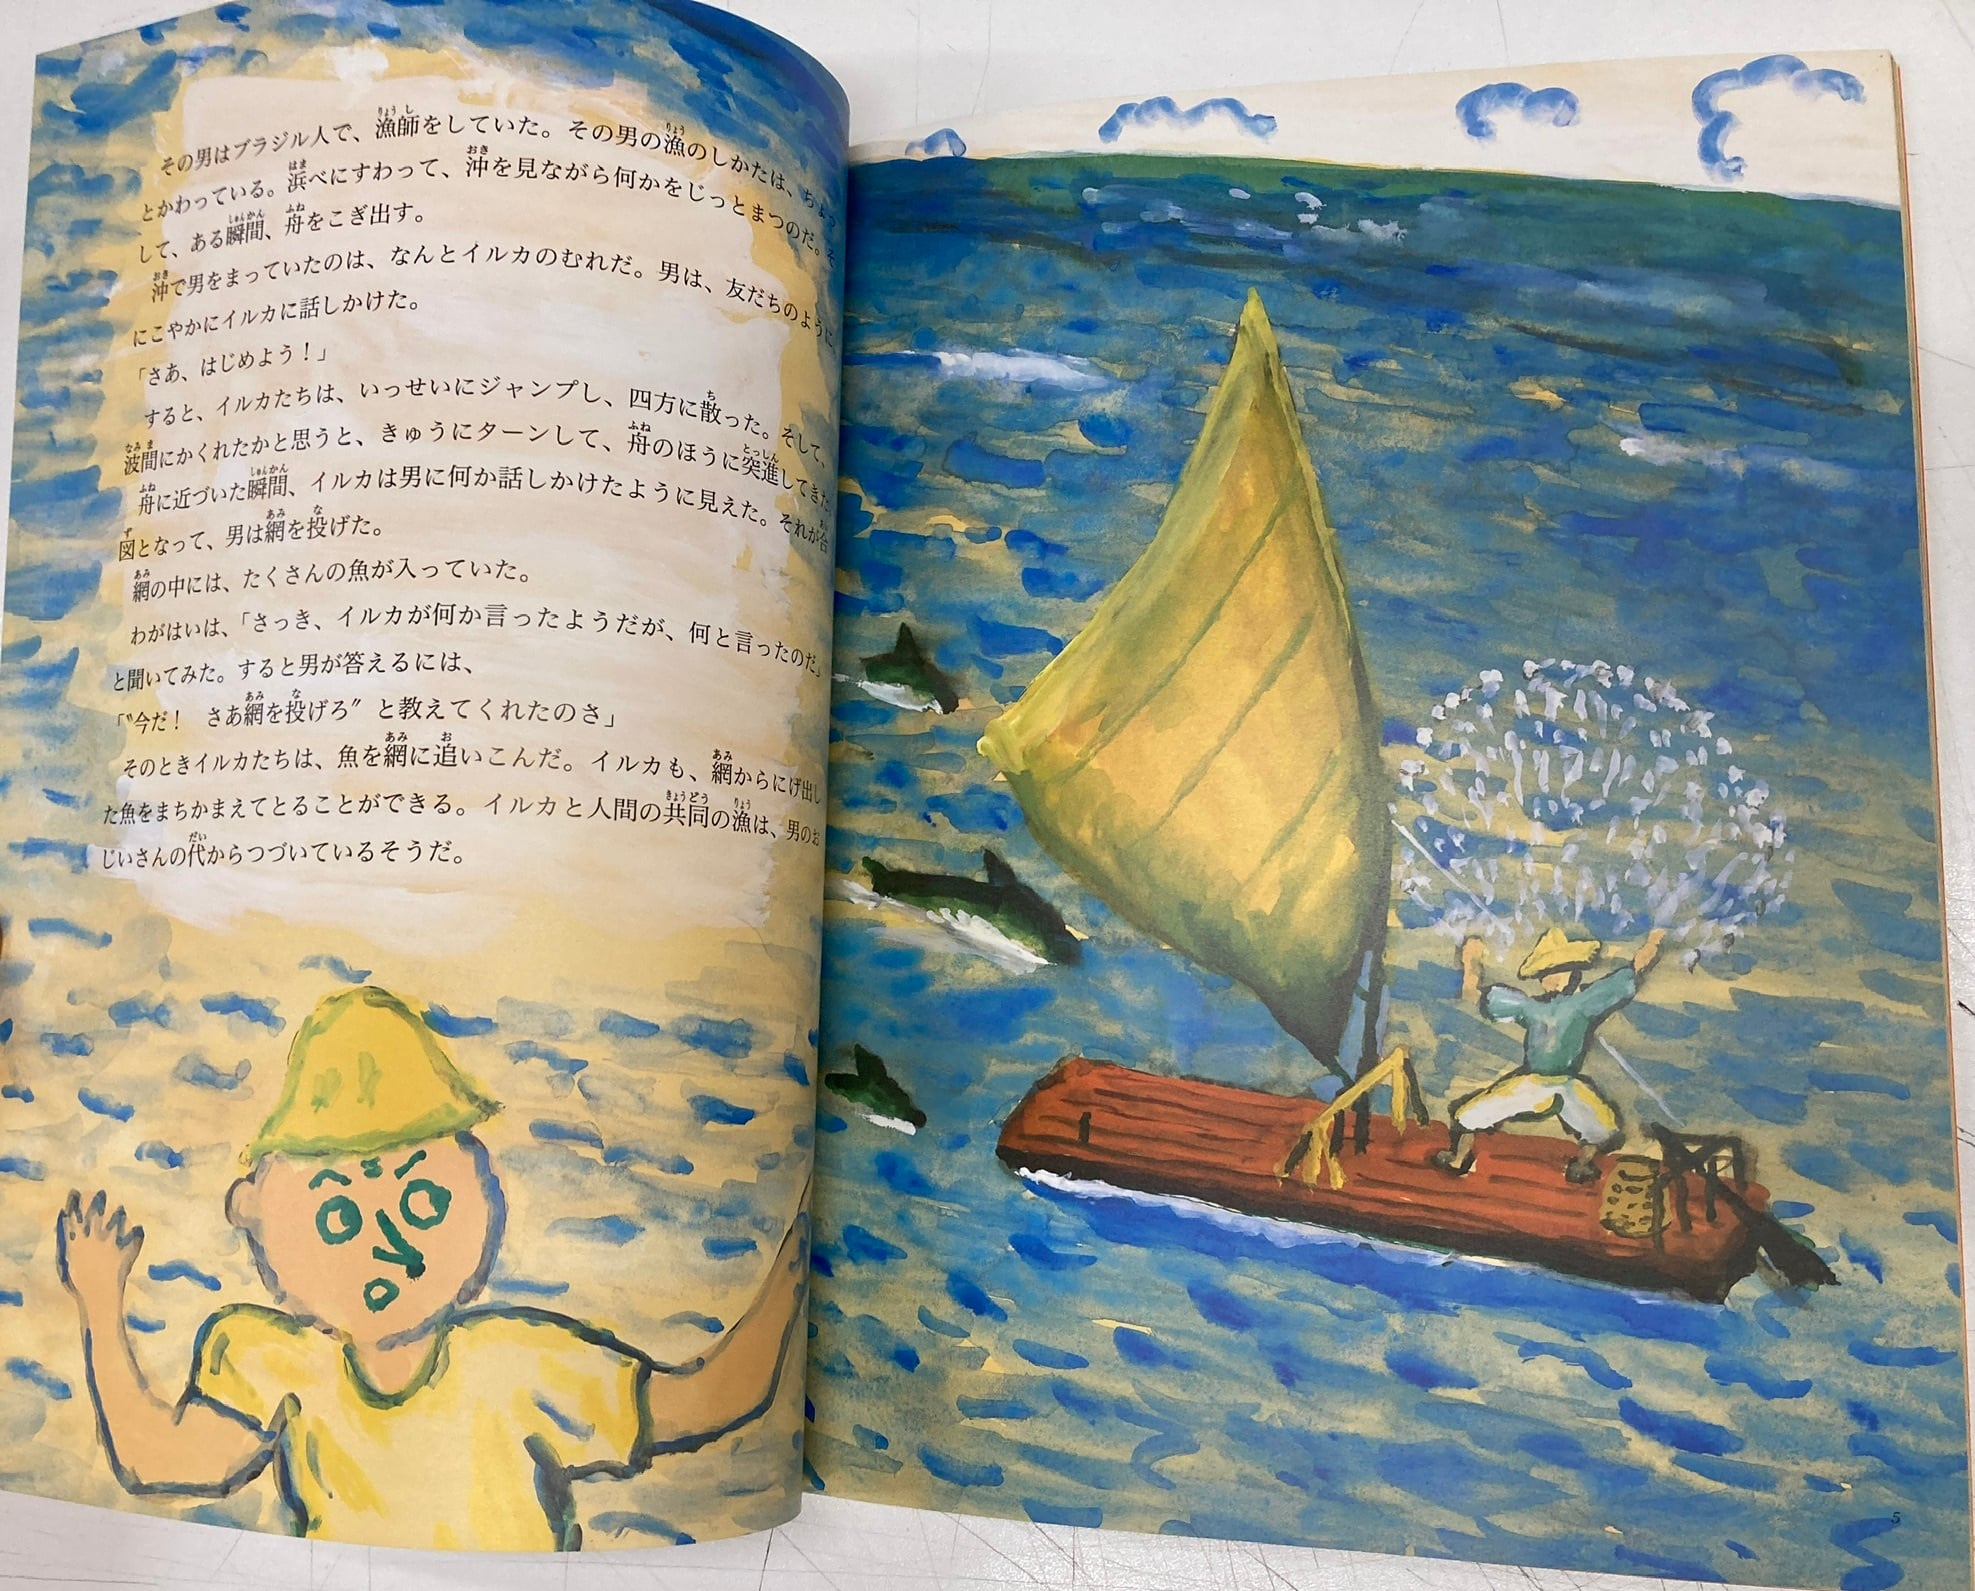 その男はブラジル人で、漁師をしていた。その男の漁のしかたは、ちょっ
とかわっている。浜べにすわって、沖を見ながら何かをじっとまつのだ。そ
して、ある瞬間、舟をこぎ出す。
沖で男をまっていたのは、なんとイルカのむれだ。男は、友だちのように、
にこやかにイルカに話しかけた。
「さあ、はじめよう！」
すると、イルカたちは、いっせいにジャンプし、四方に散った。そして、
波間にかくれたかと思うと、きゅうにターンして、舟のほうに突進してきた。
舟に近づいた瞬間、イルカは男に何か話しかけたように見えた。それが合
図となって、男は網を投げた。
網の中には、たくさんの魚が入っていた。
わがはいは、「さっき、イルカが何か言ったようだが、何と言ったのだ」
と聞いてみた。すると男が答えるには、
「〝今だ！　さあ網を投げろ〟と教えてくれたのさ」
そのときイルカたちは、魚を網に追いこんだ。イルカも、網からにげ出し
た魚をまちかまえてとることができる。イルカと人間の共同の漁は、男のお
じいさんの代からつづいているそうだ。
5